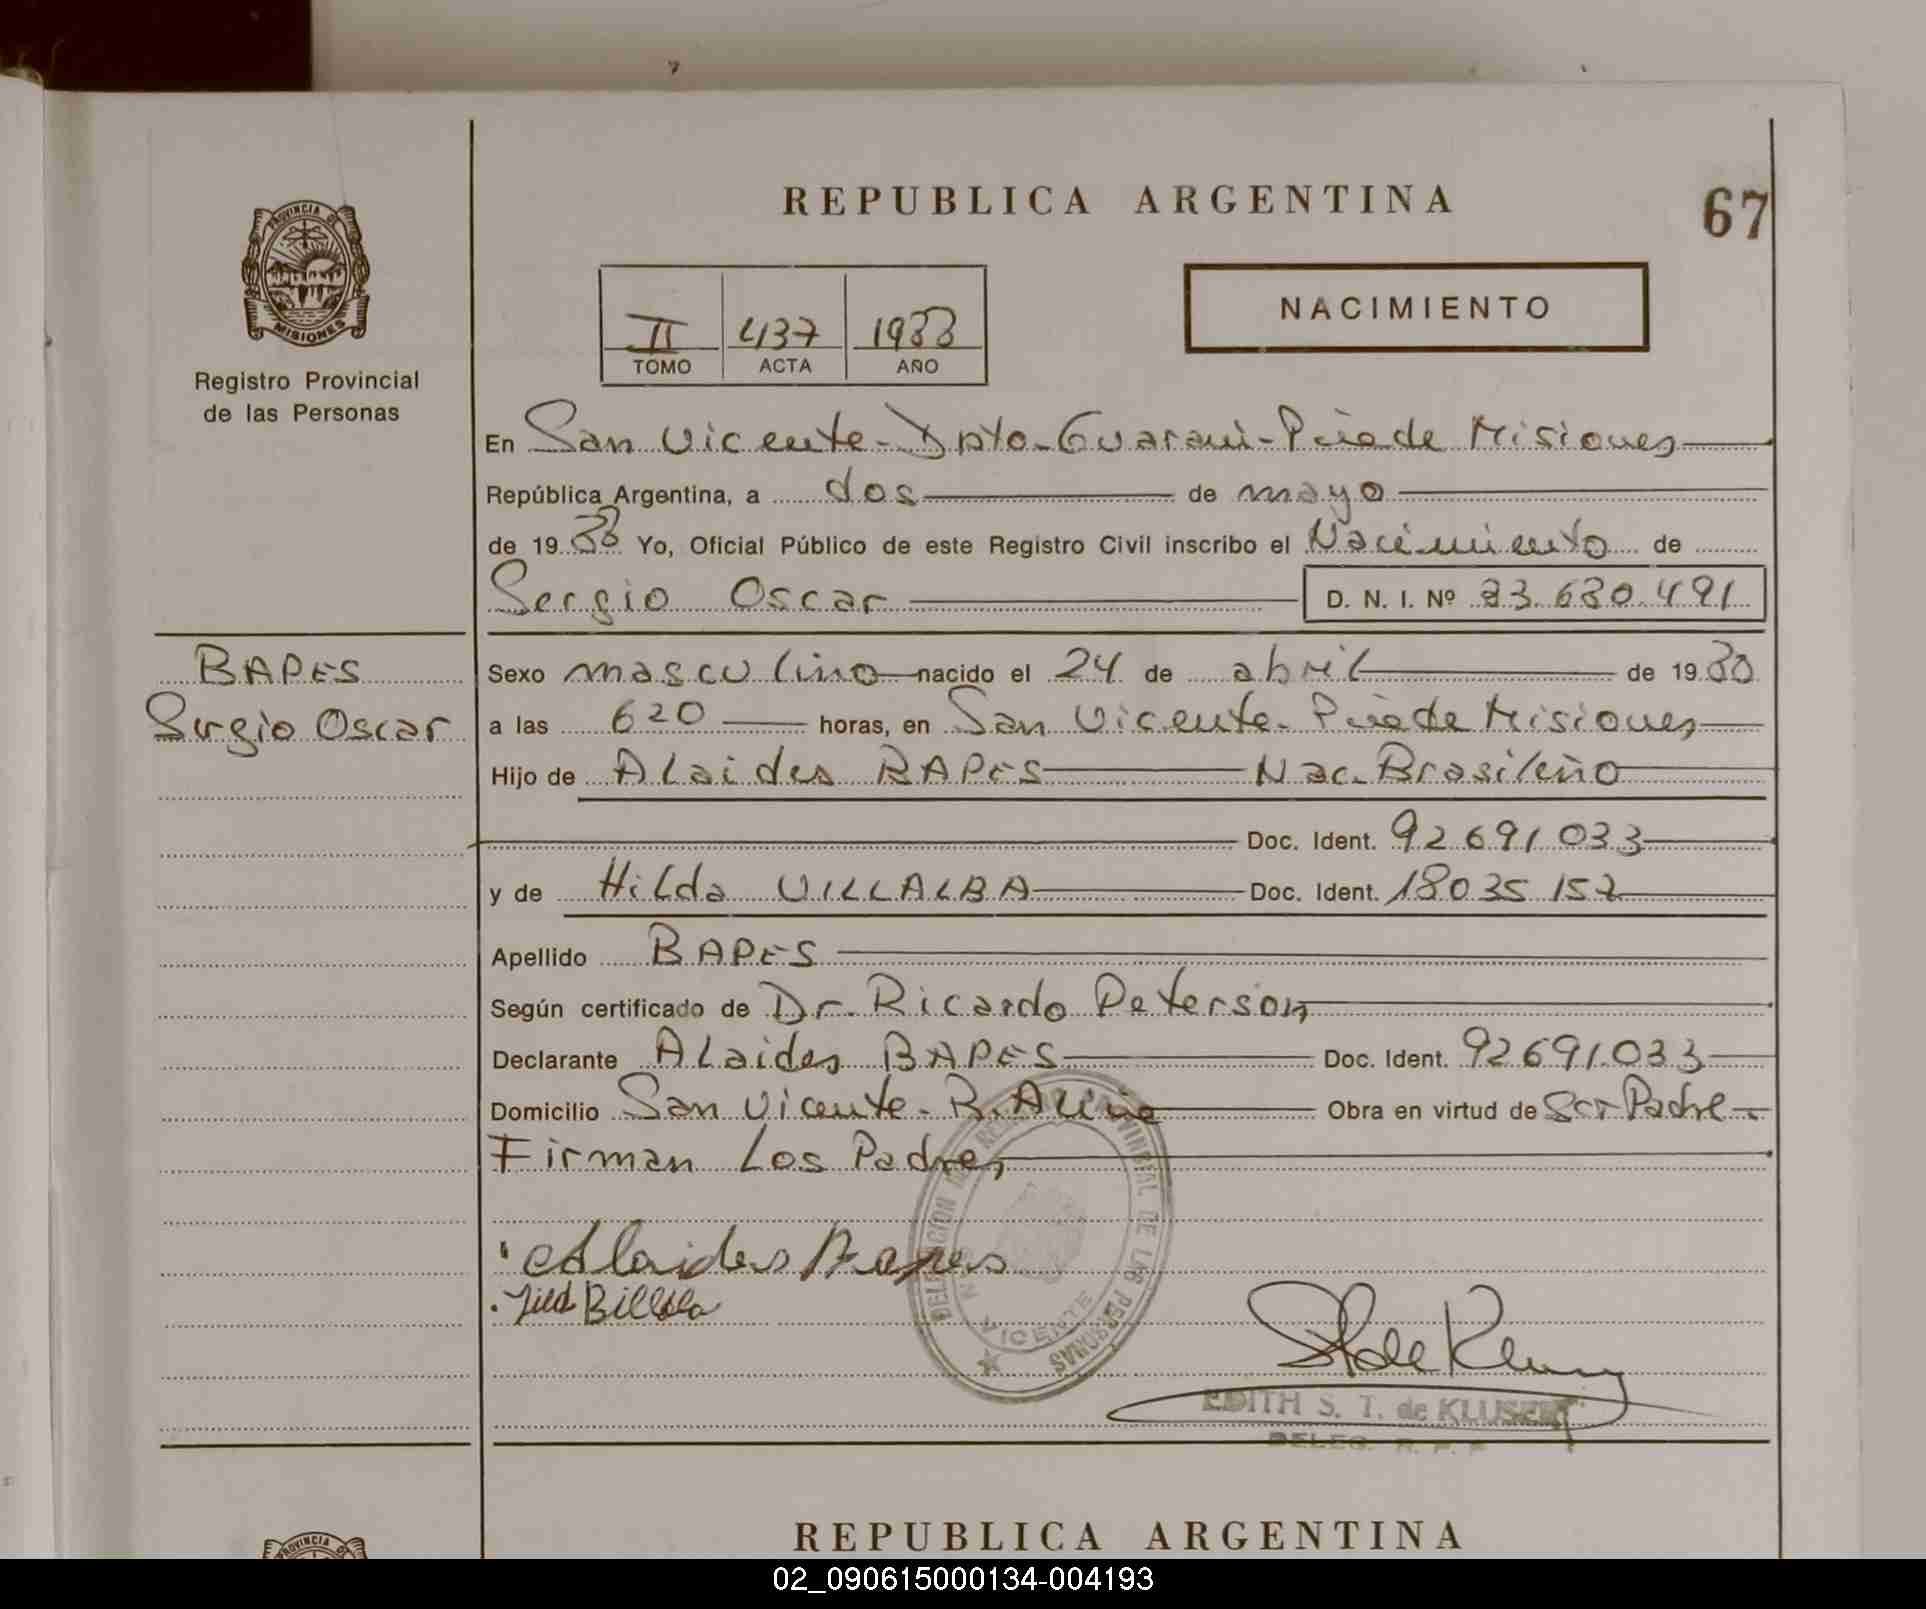 REPUBLICA ARGENTINA
67
PROVINCIA DE
MISIONES
Registro Provincial
de las Personas
II 437 1988
TOMO ACTA AÑO
NACIMIENTO
En San Vicente - Dpto - Guaraní - Pcia de Misiones
República Argentina, a dos de mayo
de 19 88 Yo, Oficial Público de este Registro Civil inscribo el Nacimiento de
Sergio Oscar D. N. I. Nº 33.680.491
BAPES
Sergio Oscar
Sexo masculino nacido el 24 de abril de 19
a las 620 horas, en San Vicente - Pcia de Misiones
Hijo de Alaides BAPES Nac. Brasileño
Doc. Ident. 92 691 033
y de Hilda VILLALBA Doc. Ident. 18035 157
Apellido BAPES
Según certificado de Dr. Ricardo Peterson
Declarante Alaides BAPES Doc. Ident. 92691.033
Domicilio San Vicente - B. Obra en virtud de Ser Padre
Firman Los Padres
Alaides Bapes
DELEGACION DEL REGISTRO PROVINCIAL DE LAS PERSONAS
VICENTE
EDITH S. T. de KLUSENER
DELEG. R. P. P.
REPUBLICA ARGENTINA
PROVINCIA DE
02_090615000134-004193